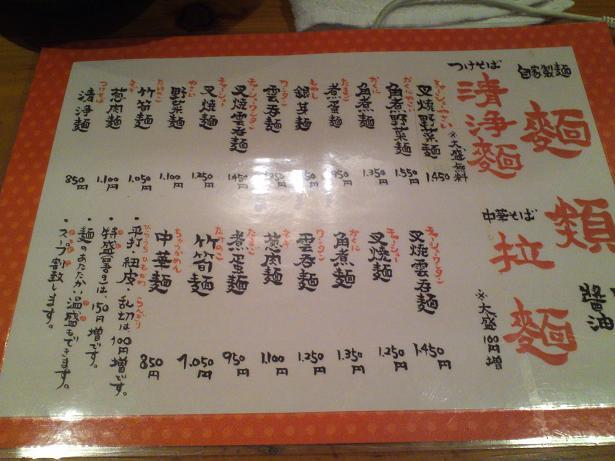 麺類
醤油
自家製麺
つけそば
清浄麺
※大盛無料
チャーシュー、やさい
叉焼野菜麺 1.450
かくにやさい
角煮野菜麺 1.550円
かくに
角煮麺 1.350円
たまご
煮蛋麺
もやし
銀芽麺
ワンタン
雲吞麺
チャーシュー、ワンタン
叉焼雲吞麺 1.450円
チャーシュー
叉焼麺 1.250円
やさい
野菜麺 1.100円
たけのこ
竹筍麺 1.050円
ネギ
葱肉麺 1.100円
つけそば
清浄麺 850円
中華そば
拉麺
※大盛100円増
チャーシュー、ワンタン
叉焼雲吞麺 1.450円
チャーシュー
叉焼麺 1.250円
かくに
角煮麺 1.350円
ワンタン
雲吞麺 1.250円
ネギ
葱肉麺 1.100円
たまご
煮蛋麺 950円
たけのこ
竹筍麺 1.050円
ちゅうかめん
中華麺 850円
・平打、紐皮、乱切は100円増です。
・特盛は、150円増です。
・麺のあたたかい温盛もできます。
・スープ割致します。